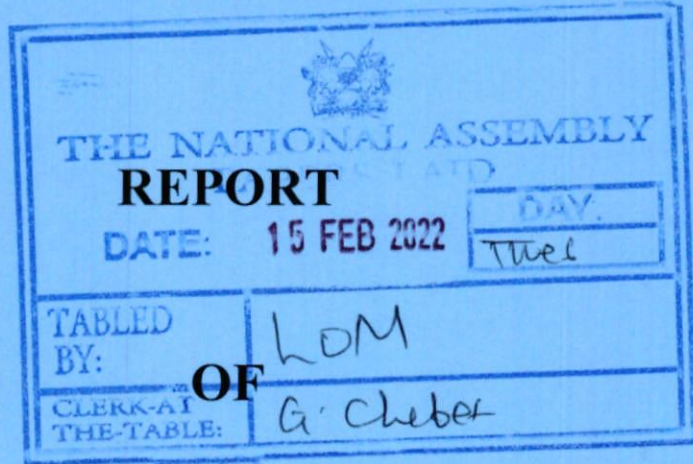 THE NATIONAL ASSEMBLY
PAPERS LAID
REPORT
DATE: 15 FEB 2022
DAY:
Tues
TABLED BY:
LOM
OF
CLERK-AT THE-TABLE:
G. Cheber